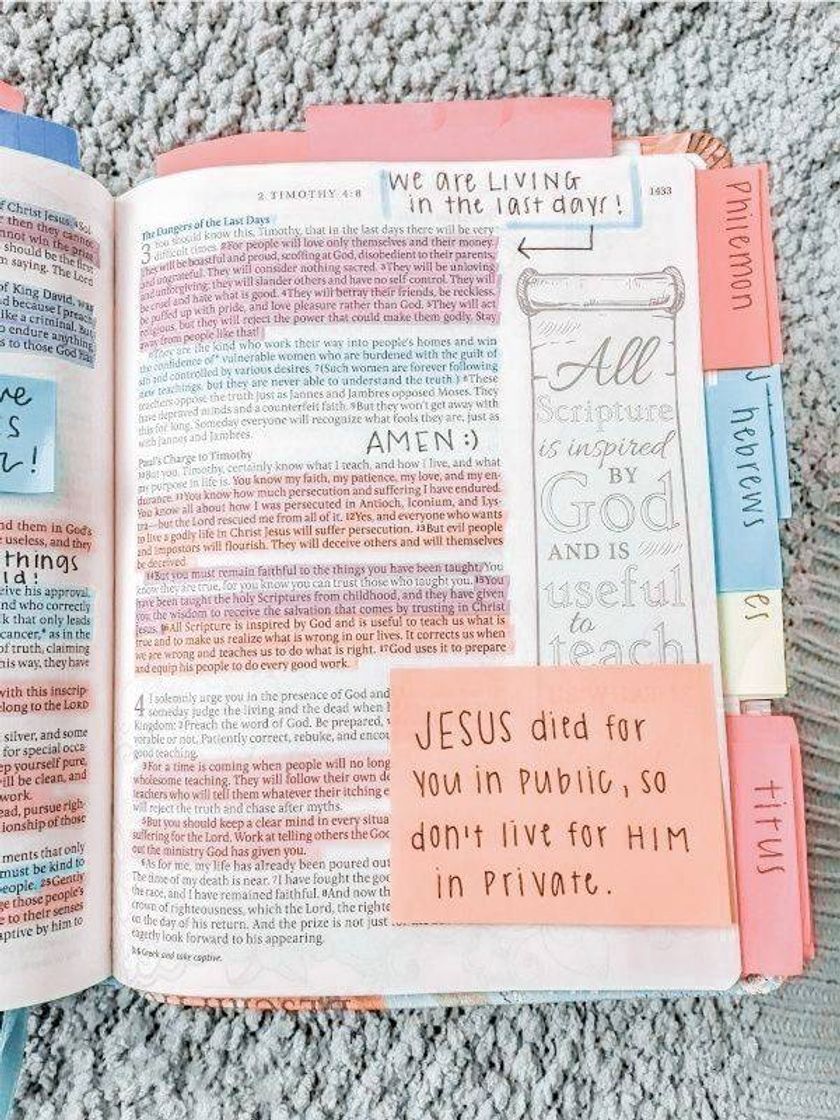 f Christ Jesus.
then they cannot
annot win the prize
should be the first
m saying. The Lord
of King David, was
d because I preach
like a criminal. But
o endure anything
s to those God has
ve
s
r!
nd them in God's
useless, and they
things
ld!
eive his approval.
nd who correctly
k that only leads
cancer,* as in the
of truth, claiming
his way, they have
with this inscrip-
elong to the LORD
silver, and some
for special occa-
ep yourself pure,
ill be clean, and
work.
ead, pursue righ-
ionship of those
ments that only
must be kind to
eople. 25Gently
ge those people's
e to their senses
aptive by him to
2 TIMOTHY 4:8
We are LIVING
in the last days!
1433
The Dangers of the Last Days
3 You should know this, Timothy, that in the last days there will be very
difficult times. 2For people will love only themselves and their money.
They will be boastful and proud, scoffing at God, disobedient to their parents,
and ungrateful. They will consider nothing sacred. 3They will be unloving
and unforgiving; they will slander others and have no self-control. They will
be cruel and hate what is good. 4They will betray their friends, be reckless,
be puffed up with pride, and love pleasure rather than God. 5They will act
religious, but they will reject the power that could make them godly. Stay
away from people like that!
6They are the kind who work their way into people's homes and win
the confidence of* vulnerable women who are burdened with the guilt of
sin and controlled by various desires. 7(Such women are forever following
new teachings, but they are never able to understand the truth.) 8These
teachers oppose the truth just as Jannes and Jambres opposed Moses. They
have depraved minds and a counterfeit faith. 9But they won't get away with
this for long. Someday everyone will recognize what fools they are, just as
with Jannes and Jambres.
AMEN :)
Paul's Charge to Timothy
10But you, Timothy, certainly know what I teach, and how I live, and what
my purpose in life is. You know my faith, my patience, my love, and my en-
durance. 11You know how much persecution and suffering I have endured.
You know all about how I was persecuted in Antioch, Iconium, and Lys-
tra—but the Lord rescued me from all of it. 12Yes, and everyone who wants
to live a godly life in Christ Jesus will suffer persecution. 13But evil people
and impostors will flourish. They will deceive others and will themselves
be deceived.
14But you must remain faithful to the things you have been taught. You
know they are true, for you know you can trust those who taught you. 15You
have been taught the holy Scriptures from childhood, and they have given
you the wisdom to receive the salvation that comes by trusting in Christ
Jesus. 16All Scripture is inspired by God and is useful to teach us what is
true and to make us realize what is wrong in our lives. It corrects us when
we are wrong and teaches us to do what is right. 17God uses it to prepare
and equip his people to do every good work.
4 I solemnly urge you in the presence of God and
someday judge the living and the dead when
kingdom: 2Preach the word of God. Be prepared,
vorable or not. Patiently correct, rebuke, and encou
good teaching.
3For a time is coming when people will no long
wholesome teaching. They will follow their own de
teachers who will tell them whatever their itching e
will reject the truth and chase after myths.
5But you should keep a clear mind in every situa
suffering for the Lord. Work at telling others the Goo
out the ministry God has given you.
6As for me, my life has already been poured out
The time of my death is near. 7I have fought the goo
the race, and I have remained faithful. 8And now th
crown of righteousness, which the Lord, the righte
on the day of his return. And the prize is not just
eagerly look forward to his appearing.
3:6 Greek and take captive.
All
Scripture
is inspired
BY
God
AND IS
useful
to
teach
JESUS died for
you in public, so
don't live for HIM
in private.
Philemon
J
hebrews
es
titus